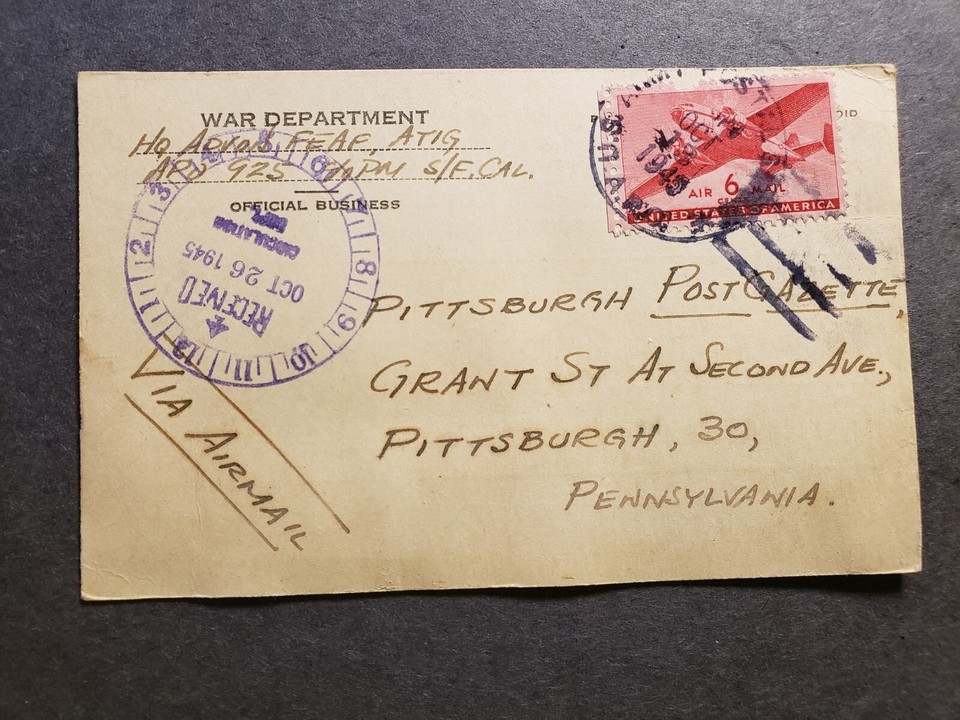 WAR DEPARTMENT
HQ ADVON FEAF, ATIG
APO 925 % PM S/F. CAL.
OFFICIAL BUSINESS
U.S. ARMY POST
OCT
1945
AIR 6 MAIL
UNITED STATES OF AMERICA
2 3 4 5 6 7 8 9 10 11 12
CIRCULATION
DEPT.
OCT 26 1945
RECEIVED
PITTSBURGH POST GAZETTE,
GRANT ST AT SECOND AVE.,
PITTSBURGH, 30,
PENNSYLVANIA.
VIA AIRMAIL